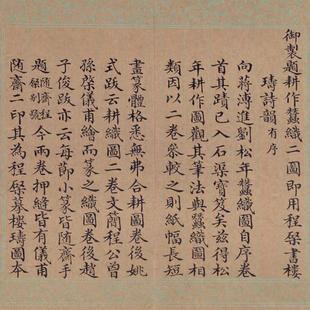 御製題耕作蠶織二圖即用程棨書樓
璹詩韻有序
向蔣溥進劉松年蠶織圖自序卷
首其蹟已入石渠寶笈矣茲得松
年耕作圖觀其筆法與蠶織圖相
類因以二卷參較之則紙幅長短
畫篆體格悉無弗合耕圖卷後姚
式跋云耕織圖二卷文簡程公曾
孫棨儀甫繪而篆之織圖卷後趙
子俊跋亦云每節小篆皆随齋手
題随齋程棨别號今兩卷押縫皆有儀甫
随齋二印其為程棨摹樓璹圖本